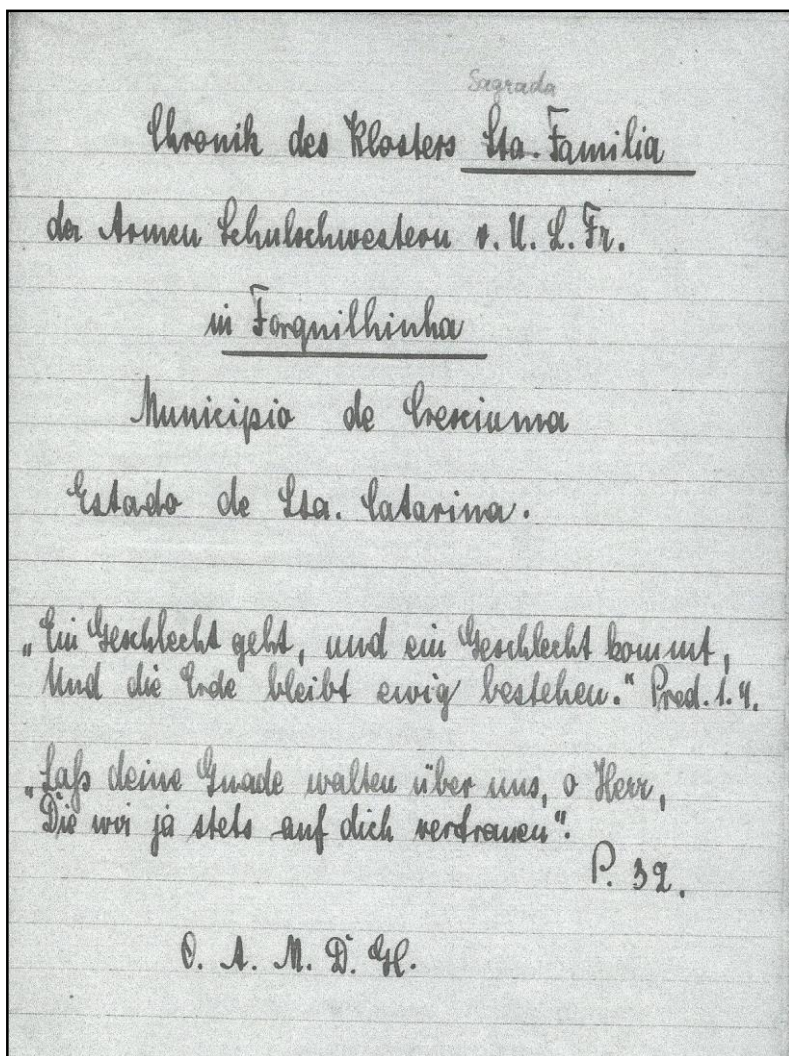 Sagrada
Chronik des Klosters Sta. Familia
der Armen Schulschwestern v. U. L. Fr.
in Forquilhinha
Municipio de Cresciuma
Estado de Sta. Catarina.
„Ein Geschlecht geht, und ein Geschlecht kommt,
Und die Erde bleibt ewig bestehen.“ Pred. 1. 4.
„Laß deine Gnade walten über uns, o Herr,
Die wir ja stets auf dich vertrauen“.
P. 32.
O. A. M. D. Gl.